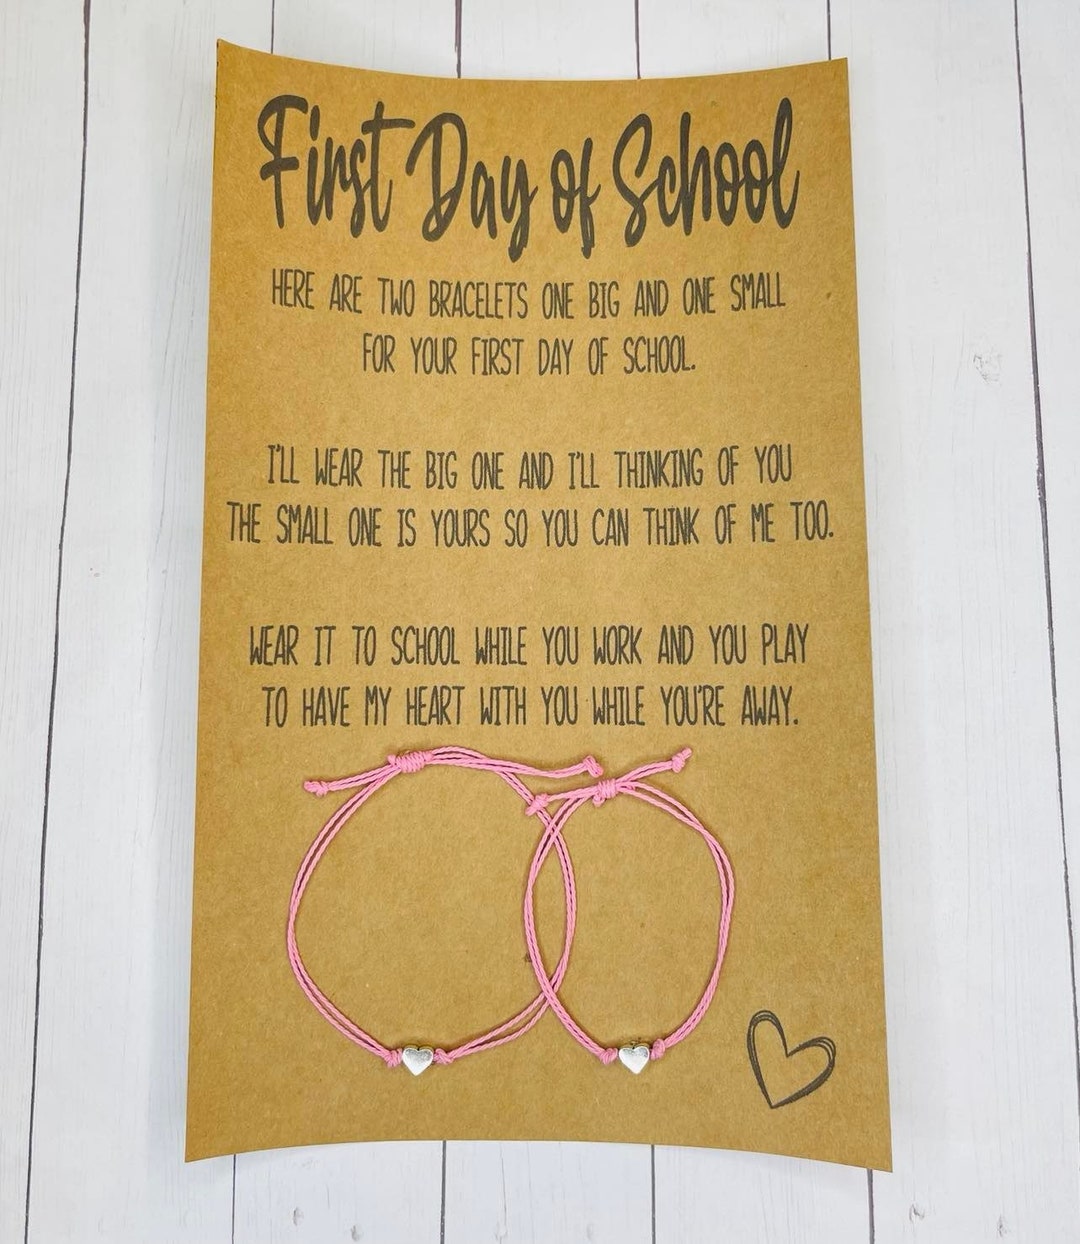 First Day of School
HERE ARE TWO BRACELETS ONE BIG AND ONE SMALL
FOR YOUR FIRST DAY OF SCHOOL.
I'LL WEAR THE BIG ONE AND I'LL THINKING OF YOU
THE SMALL ONE IS YOURS SO YOU CAN THINK OF ME TOO.
WEAR IT TO SCHOOL WHILE YOU WORK AND YOU PLAY
TO HAVE MY HEART WITH YOU WHILE YOU'RE AWAY.